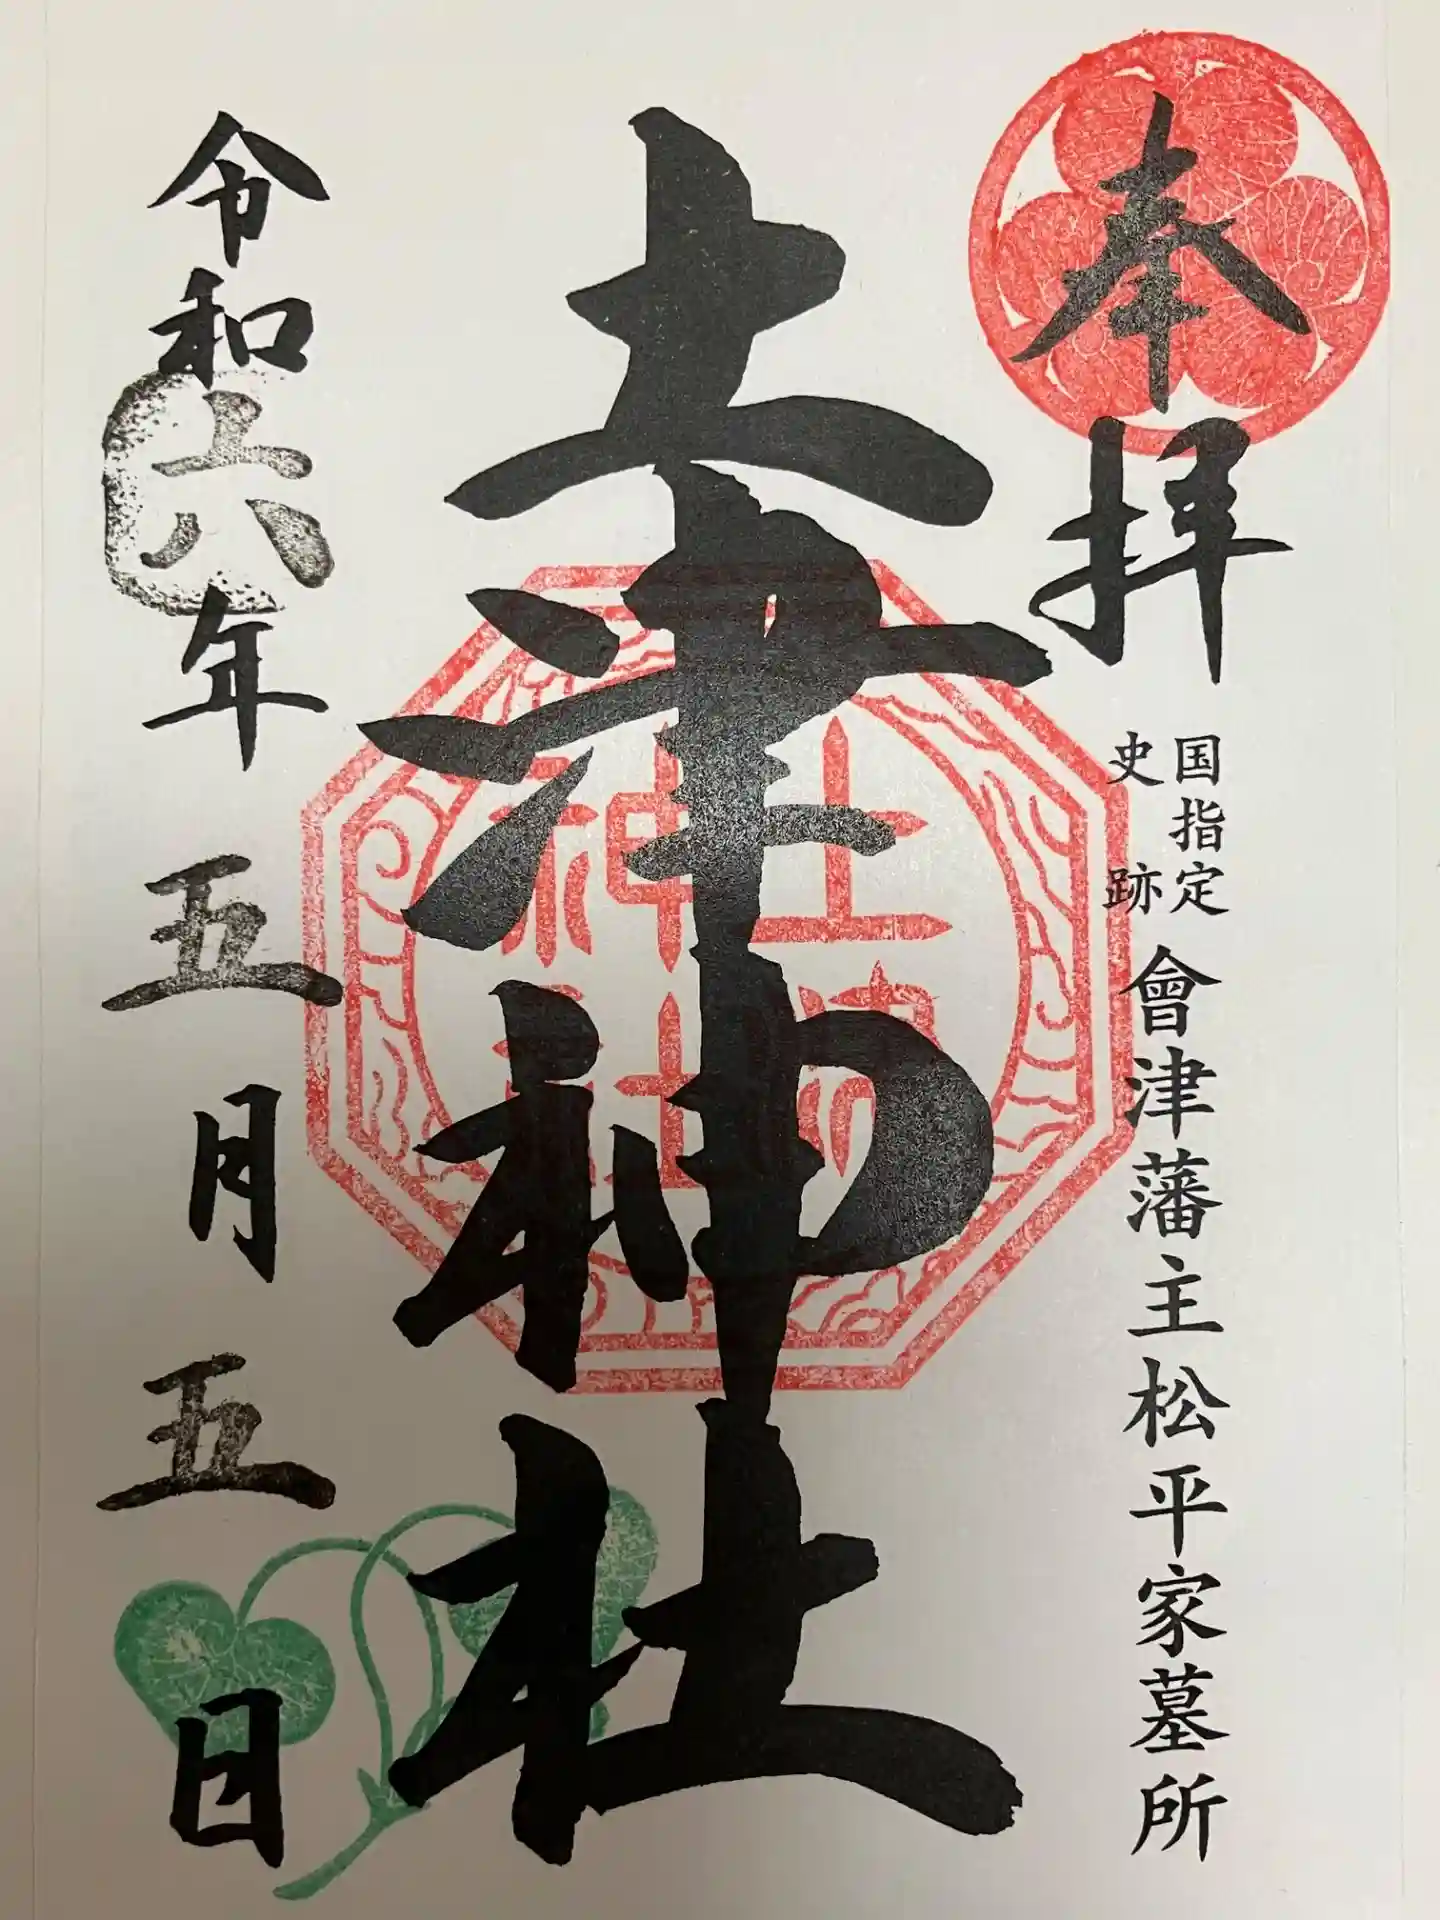 奉拝
国指定
史跡
會津藩主松平家墓所
土津神社
土津
神社
令和六年五月五日